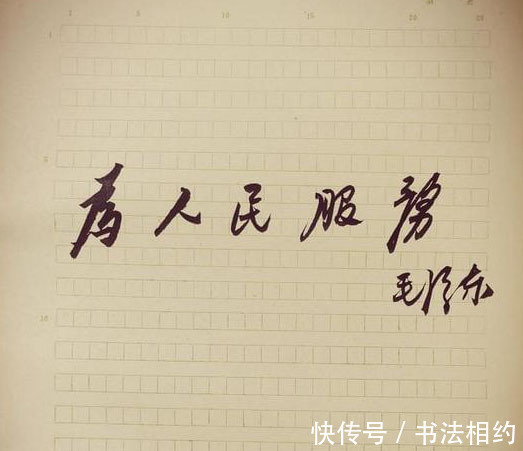 1 5 10 15 20
1
5
为人民服务
毛泽东
10
快传号 / 书法相约